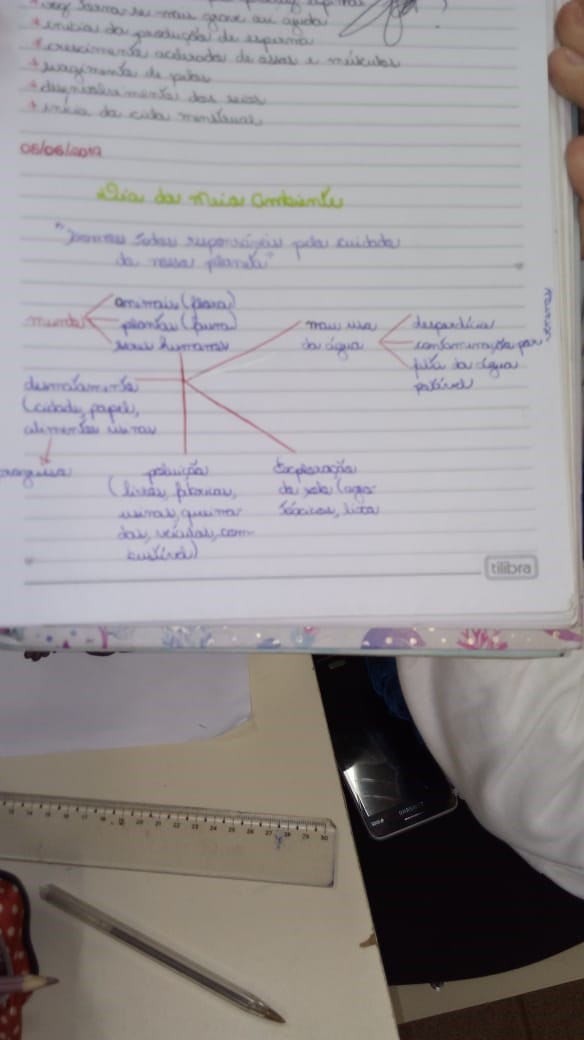 + voz torna se mais grave ou aguda
+ início da produção de esperma
+ crescimento acelerado de ossos e músculos
+ surgimento de pelos
+ desenvolvimento dos seios
+ início da ciclo menstrual
05/06/2019
Dia do Meio Ambiente
"Somos todos responsáveis pelo cuidado
do nosso planeta"
mundo
animais (flora)
plantas (fauna)
seres humanos
mau uso
da água
desperdício
contaminação por
falta da água
potável
desmatamento
(cidade, papel,
alimentos usinas
poluição
(lixos, fábricas,
usinas, queima
das, veículos, com-
bustível)
Exploração
do solo (agro-
tóxicos, lixo
tilibra
SAMSUNG
14 15 16 17 18 19 20 21 22 23 24 25 26 27 28 29 30